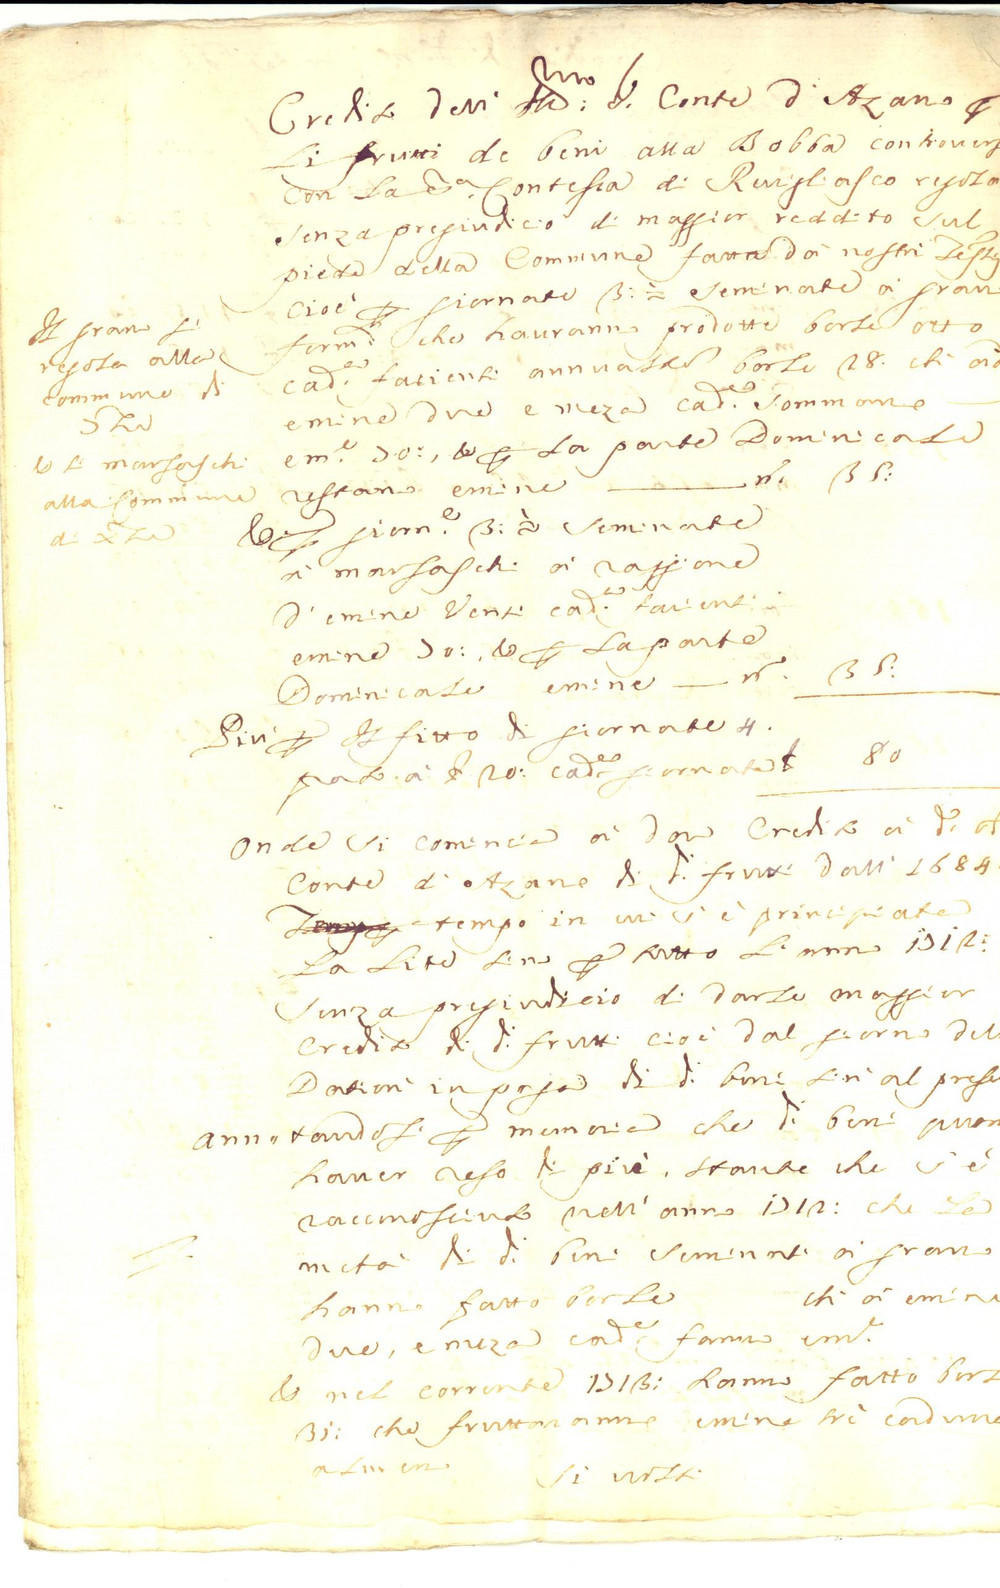 Credito dell' Ill.mo S. Conte d'Azano p
li frutti de beni alla Bobba controvers
con la S.a Contessa di Rivigliasco regola
senza pregiudicio di maggior reddito sul
piede della Commune fatta da nostri Testi
cioè p giornate 3: 1/2 seminate a gran
form.to che hauranno prodotte borle otto
cad.a facienti annualm.te borle 28: ch' a
emine due e meza cad.a sommano
em.e 70:, & p la parte Dominicale
restano emine n.o 35:
Il gran si
regola alla
commune di
& li marsaschi
alla Commune
di
& p giorn.e 3: 1/2 seminate
a' marsaschi a' raggione
d'emine venti cad.a facienti
emine 70:, & p la parte
Dominicale emine n.o 35:
Più p Il fitto di giornate 4.
prato a' £ 20: cad.a giornata £ 80
Onde si comincia a' dar Credito a' d.o
Conte d'Azano di d.i frutti dall' 1684
tempo in cui si è principiata
la lite sino p tutto l'anno 1712:
senza pregiudicio di darle maggior
Credito di d.i frutti cioè dal giorno del
Dation' in paga di d.i beni sin' al prese
annotandosi p memoria che d.i beni
haver reso di più, stante che s'è
racconosciuto nell'anno 1712: che la
metà di d.i beni seminati a' grano
hanno fatto borle ch' a' emine
due, e meza cad.a fanno em.e
& nel corrente 1713: hanno fatto borl
31: che fruttaranno emine tre caduna
almeno
si volti